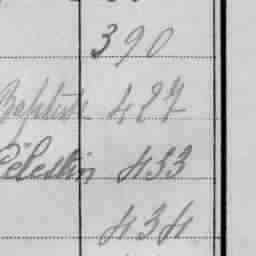 390
Baptiste 427
Célestin 433
434